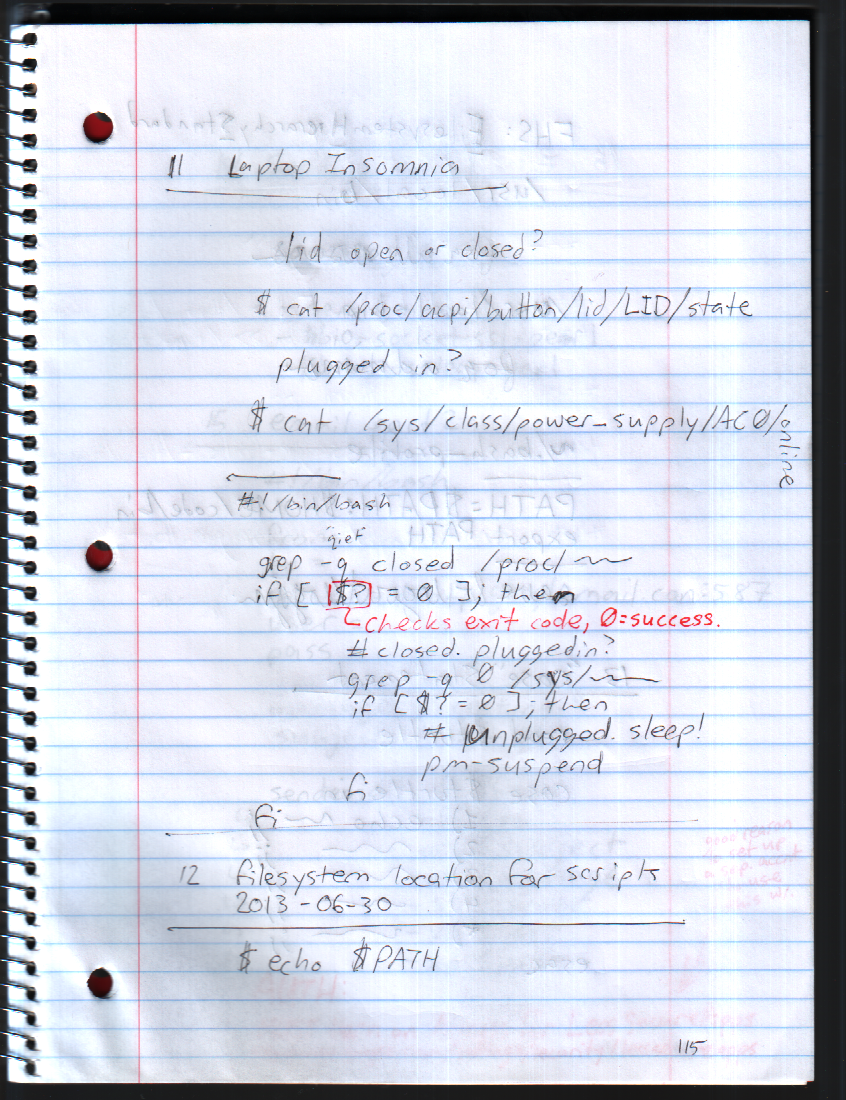 11 Laptop Insomnia
lid open or closed?
$ cat /proc/acpi/button/lid/LID/state
plugged in?
$ cat /sys/class/power_supply/AC0/online
#!/bin/bash
qief
grep -q closed /proc/~~
if [ $? = 0 ]; then
checks exit code, 0=success.
# closed. pluggedin?
grep -q 0 /sys/~~
if [ $? = 0 ]; then
# unplugged. sleep!
pm-suspend
fi
fi
12 filesystem location for scripts
2013-06-30
$ echo $PATH
115